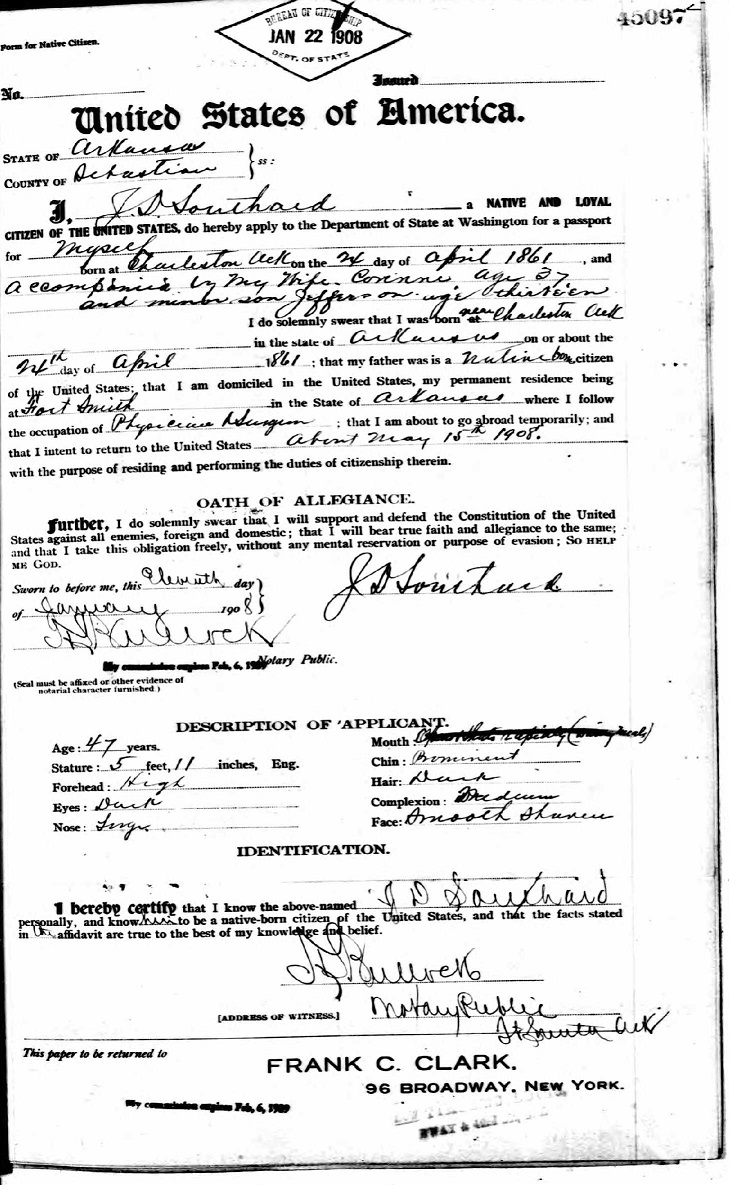 45097
BUREAU OF CITIZENSHIP
JAN 22 1908
DEPT. OF STATE
Form for Native Citizen.
No.
Issued
United States of America.
STATE OF Arkansas
COUNTY OF Sebastian
ss:
I, J. D. Southard a NATIVE AND LOYAL
CITIZEN OF THE UNITED STATES, do hereby apply to the Department of State at Washington for a passport
for Myself
born at Charleston Ark on the 24 day of April 1861, and
accompanied by My Wife Corinne age 37
and minor son Jefferson age thirteen
I do solemnly swear that I was born near at Charleston Ark
in the state of Arkansas on or about the
24th day of April 1861; that my father was is a Native born citizen
of the United States; that I am domiciled in the United States, my permanent residence being
at Fort Smith in the State of Arkansas where I follow
the occupation of Physician & Surgeon; that I am about to go abroad temporarily; and
that I intent to return to the United States About May 15th 1908.
with the purpose of residing and performing the duties of citizenship therein.
OATH OF ALLEGIANCE.
Further, I do solemnly swear that I will support and defend the Constitution of the United
States against all enemies, foreign and domestic; that I will bear true faith and allegiance to the same;
and that I take this obligation freely, without any mental reservation or purpose of evasion; SO HELP
ME GOD.
Sworn to before me, this Eleventh day
of January 1908
J D Southard
Kullock
My commission expires Feb, 6, 1909
Notary Public.
(Seal must be affixed or other evidence of
notarial character furnished)
DESCRIPTION OF APPLICANT.
Age: 47 years.
Mouth:
Stature: 5 feet, 11 inches, Eng.
Chin: Prominent
Forehead: High
Hair: Dark
Eyes: Dark
Complexion: Medium
Nose: Large
Face: Smooth Shaven
IDENTIFICATION.
I hereby certify that I know the above-named J D Southard
personally, and know him to be a native-born citizen of the United States, and that the facts stated
in the affidavit are true to the best of my knowledge and belief.
Kullock
Notary Public
[ADDRESS OF WITNESS.]
Ft Smith Ark
This paper to be returned to
FRANK C. CLARK.
96 BROADWAY, NEW YORK.
My commission expires Feb, 6, 1909